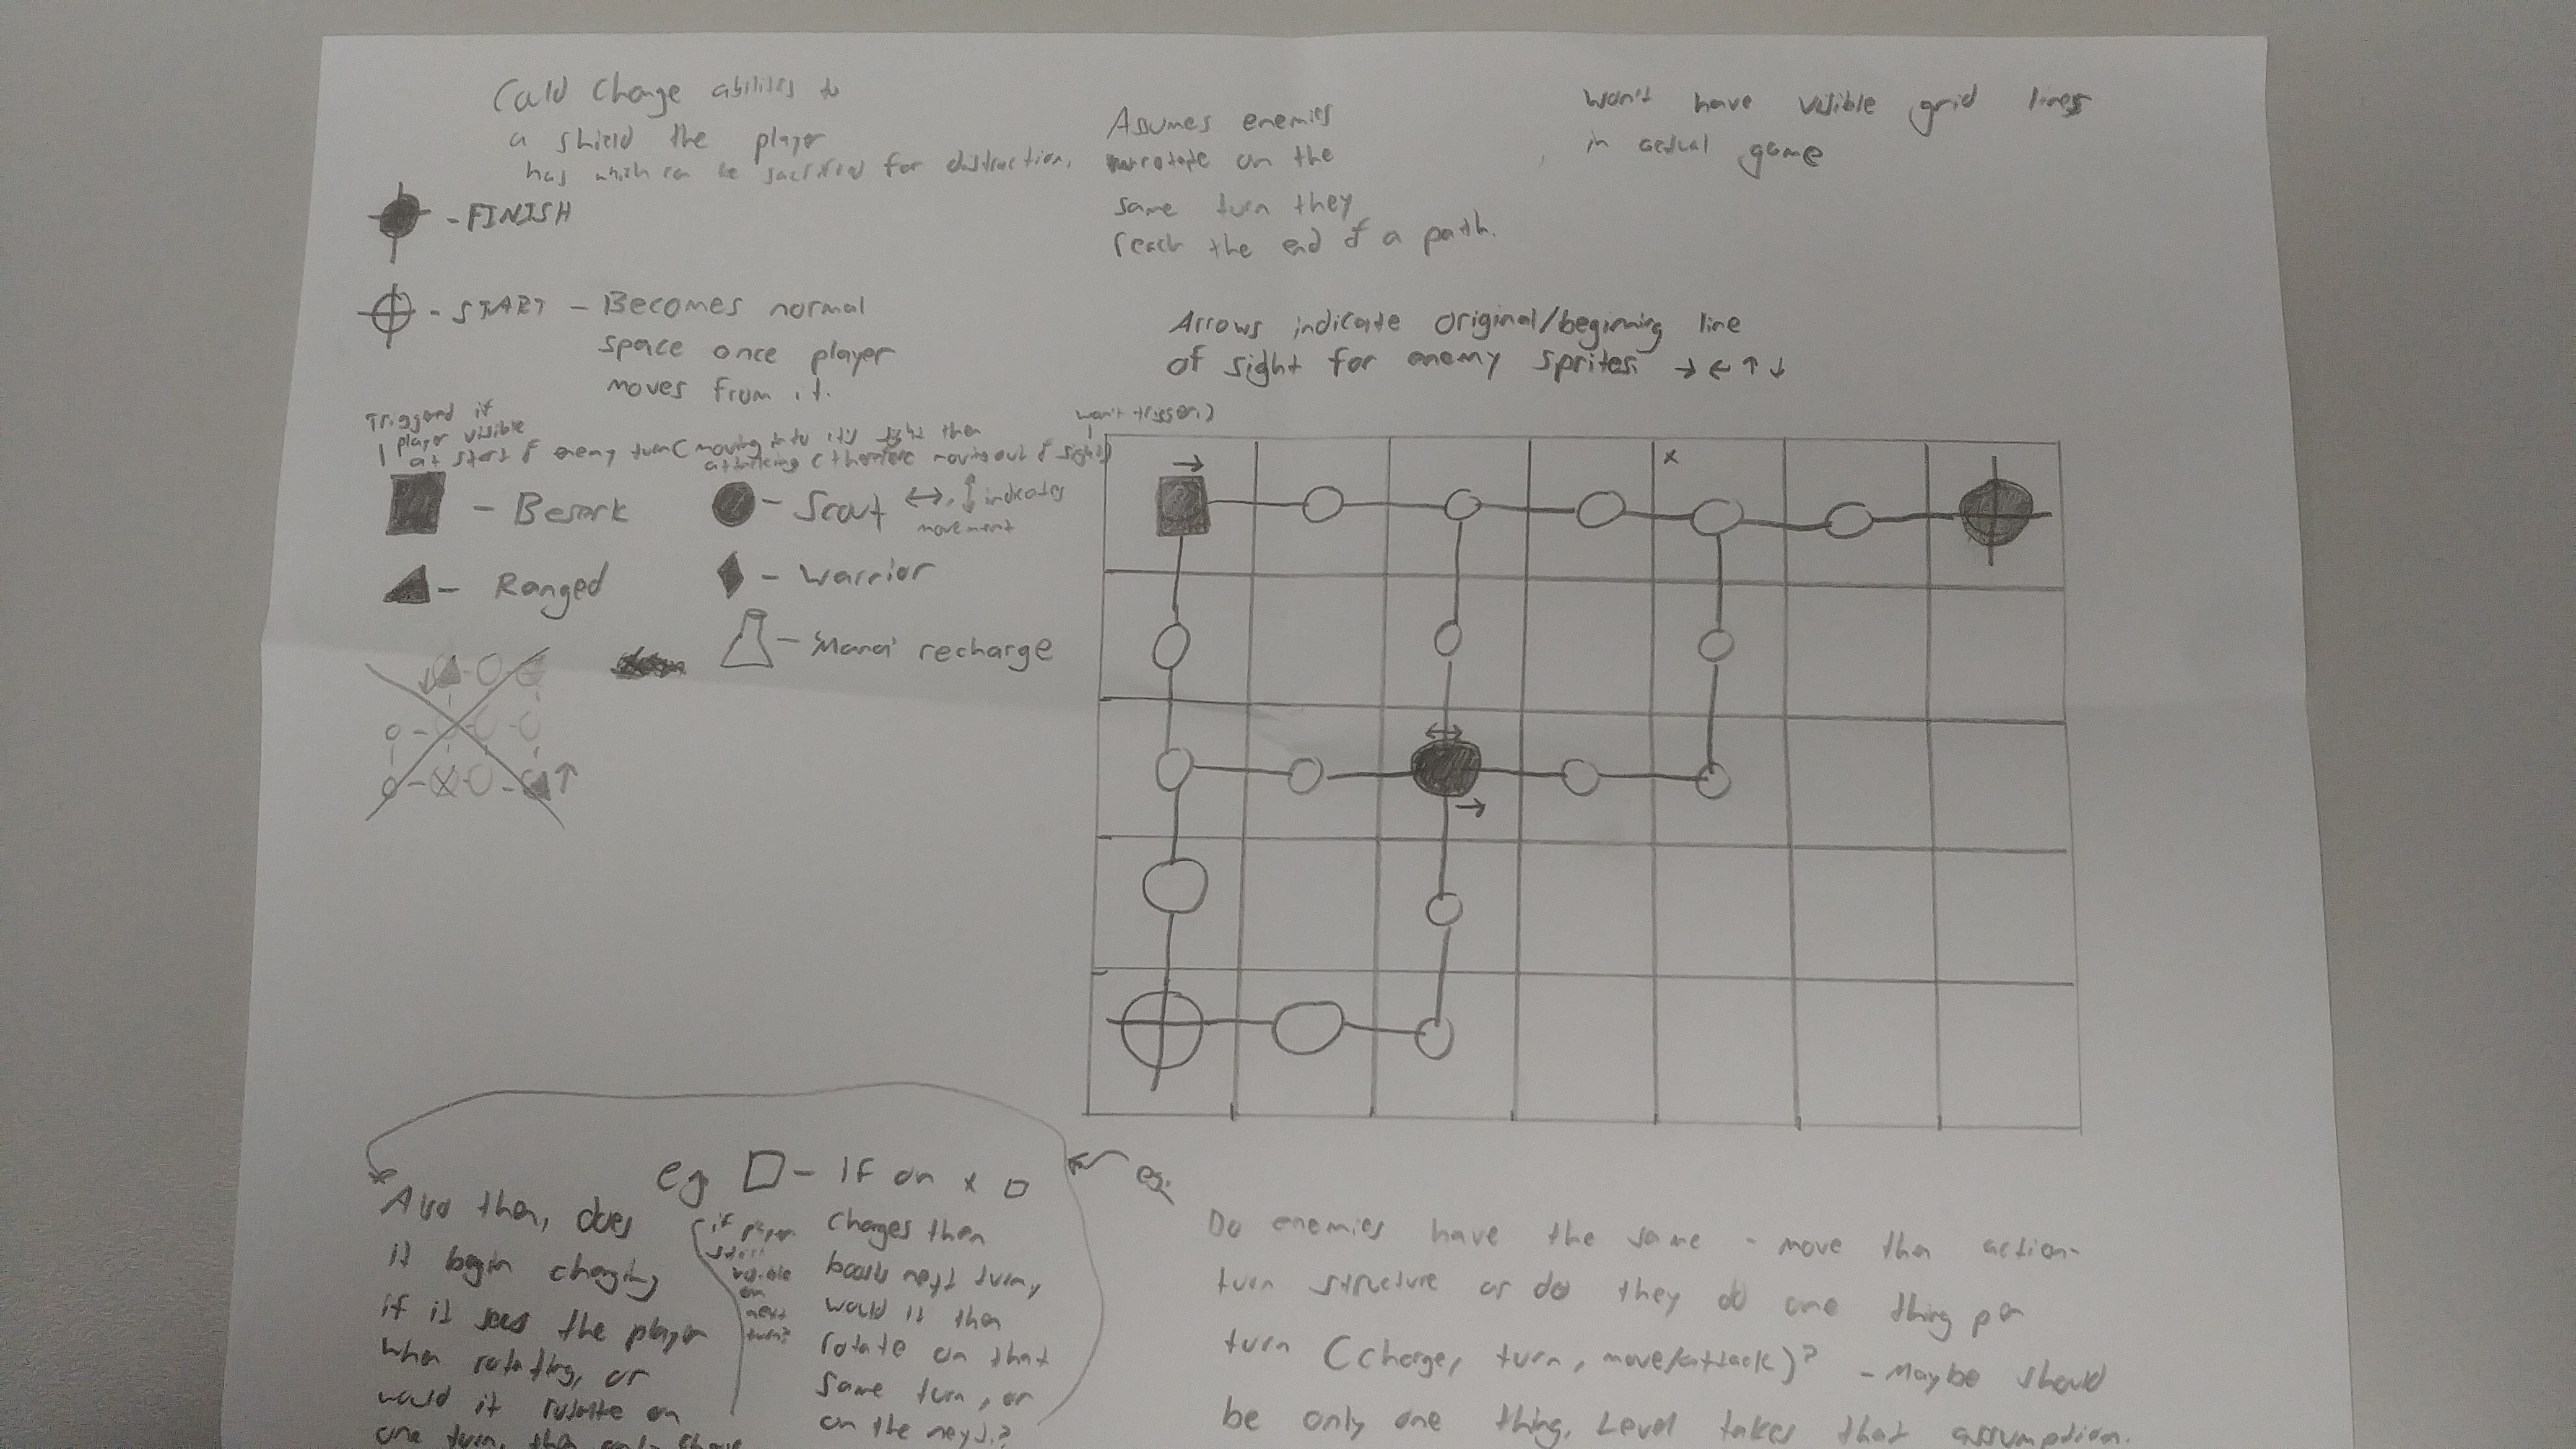 Could change abilities to
a shield the player
has which can be sacrificed for distraction,
Assumes enemies
rotate on the
same turn they
reach the end of a path.
won't have visible grid lines
in actual game
- FINISH
- START - Becomes normal
space once player
moves from it.
Arrows indicate original/begining line
of sight for enemy sprites → ← ↑ ↓
Triggered if
player visible
at start of enemy turn (moving into its sight then
attacking otherwise moving out of sight
won't trigger)
- Beserk
- Scout ↔, ↕ indicates
movement
- Ranged
- Warrior
- Mana recharge
x
eg.
eg □ - If on x □
charges then
back next turn,
would it then
rotate on that
same turn, or
on the next?
(if player
still
visible
on
next
turn?
Also then, does
it begin charging
if it sees the player
when rotating, or
would it rotate on
one turn, then
Do enemies have the same - move then action -
turn structure or do they do one thing per
turn (charge, turn, move/attack)? - Maybe should
be only one thing, Level takes that assumption.